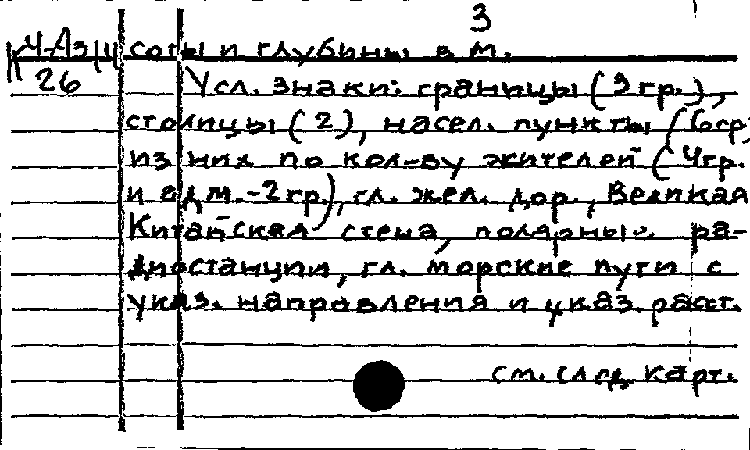 3
К Ч-Аз/4 соты и глубины в м.
26 Усл. знаки: границы (3 гр.),
столицы (2), насел. пункты (6 гр
из них по кол-ву жителей (4 гр.
и адм. - 2 гр.), гл. жел. дор., Великая
Китайская стена, полярные ра-
диостанции, гл. морские пути с
указ. направления и указ. расст.
см. след. карт.